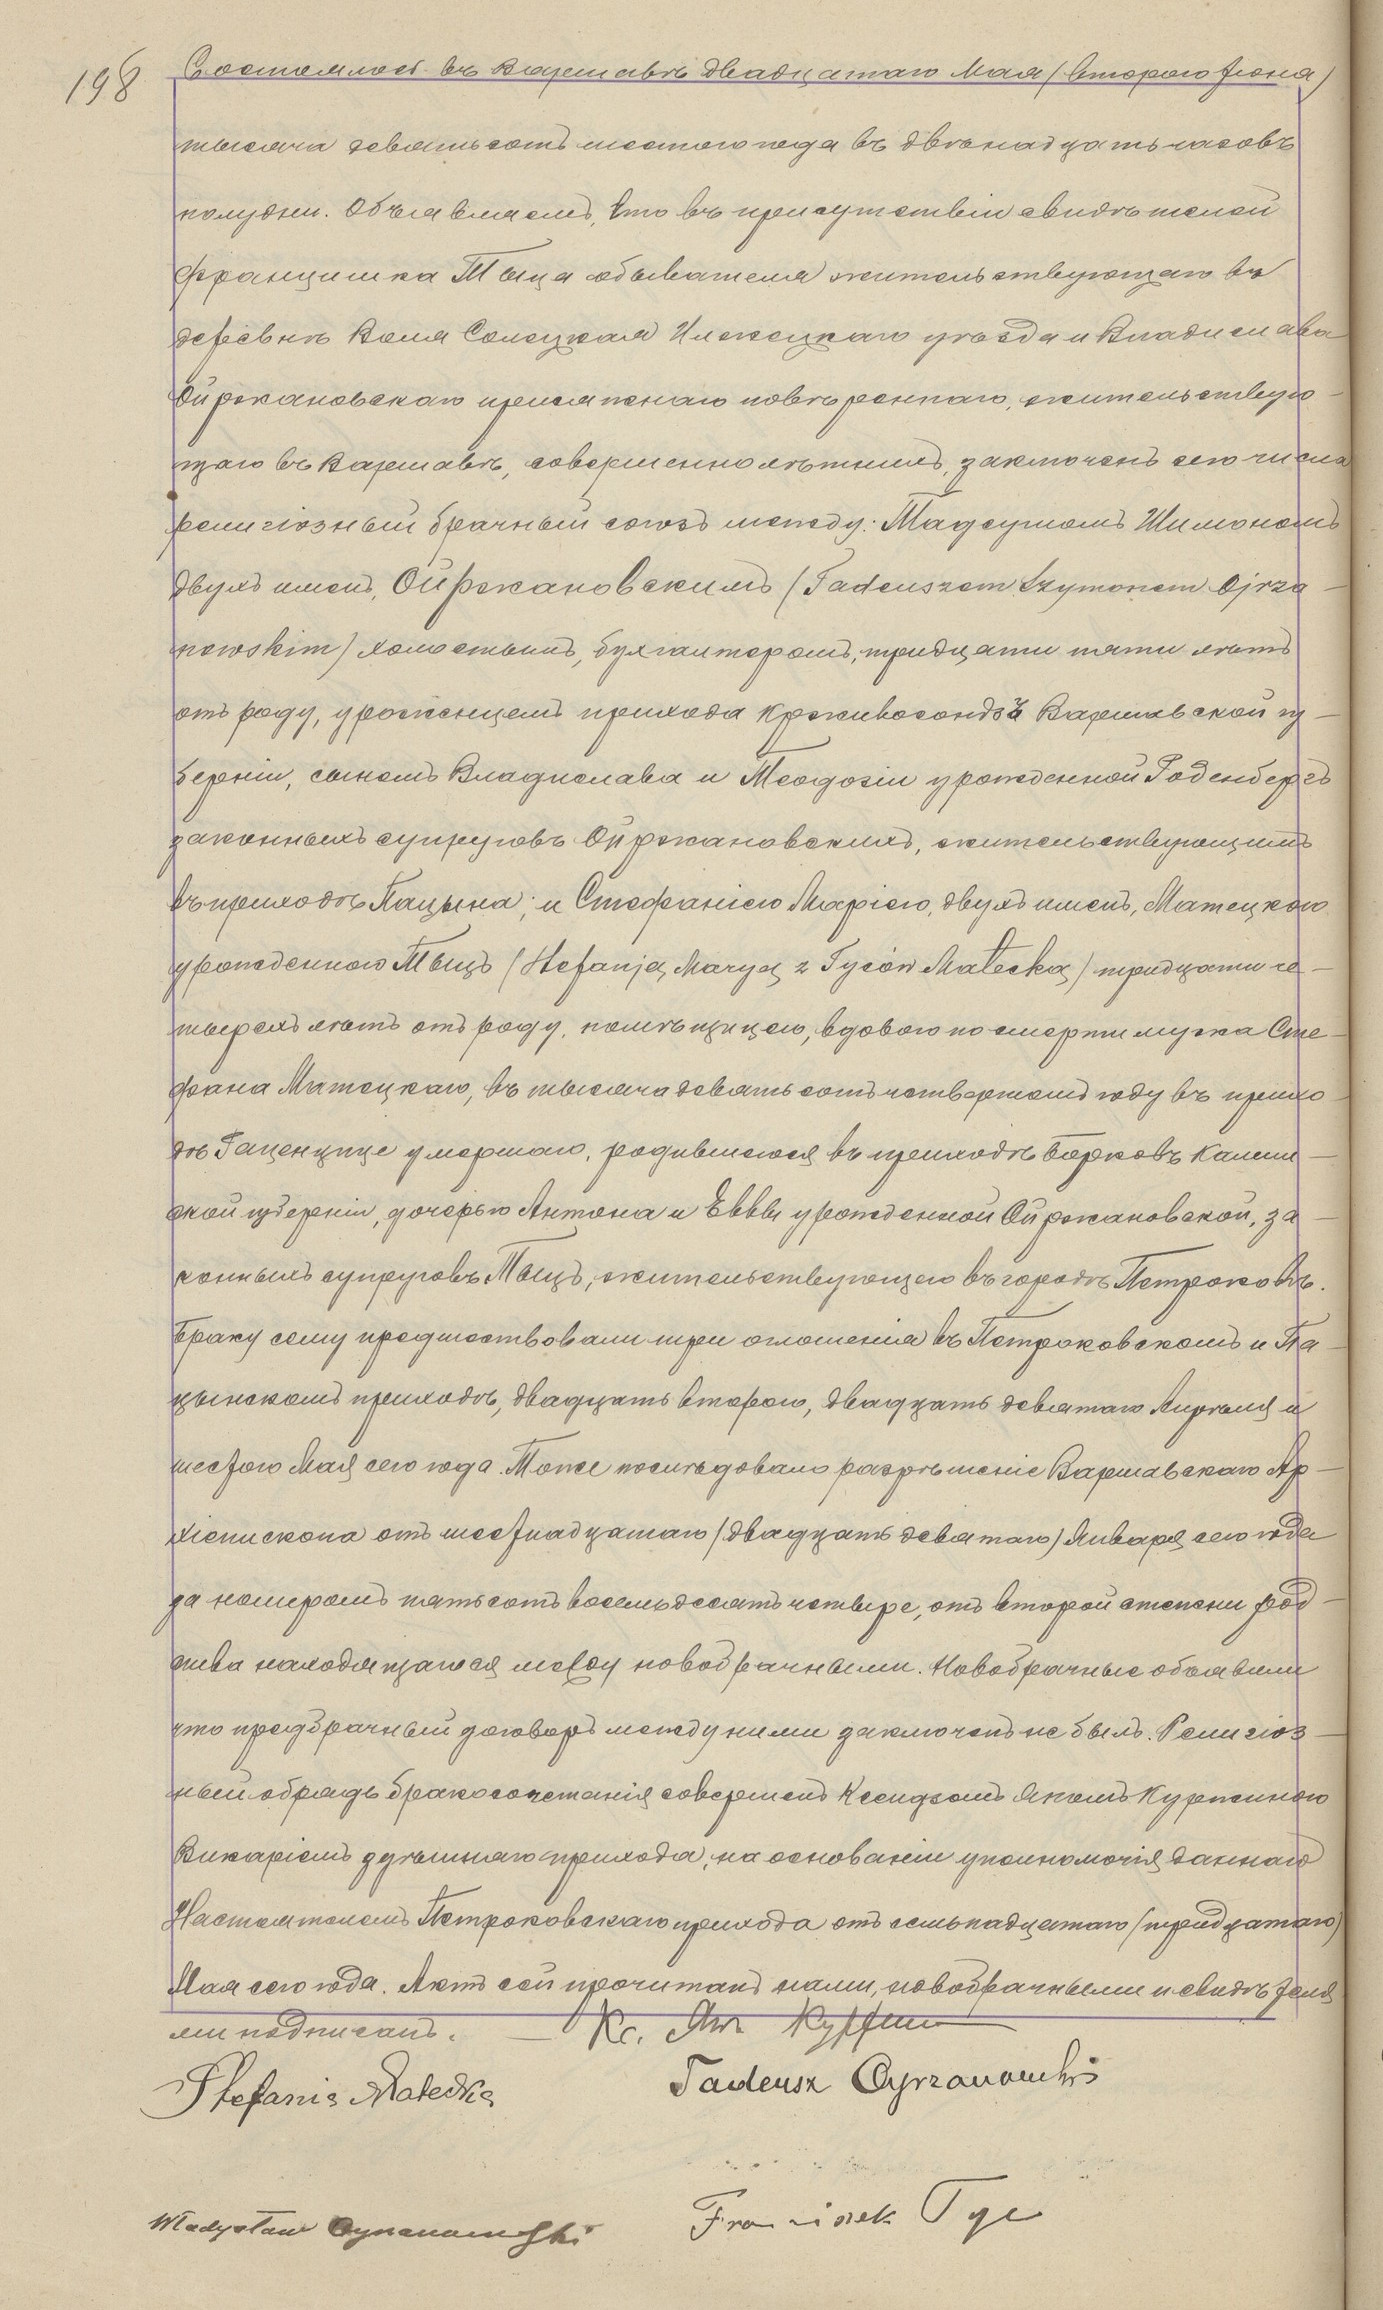 198
Состоялось въ Варшавѣ двадцатаго Мая (второго Іюня)
тысяча девятьсотъ шестого года въ двѣнадцать часовъ
полудни. Объявляемъ, что въ присутствіи свидѣтелей
Францишка Тыца обывателя жительствующаго въ
деревнѣ Воля Солецкая Илжецкаго уѣзда и Владислава
Ойржановскаго присяжнаго повѣреннаго, жительствую-
щаго въ Варшавѣ, совершеннолѣтнихъ, заключенъ сего числа
религіозный брачный союзъ между: Тадеушомъ Шимономъ
двухъ именъ, Ойржановскимъ (Tadeuszem Szymonem Ojrza-
nowskim) холостымъ, бухгалтеромъ, тридцати пяти лѣтъ
отъ роду, уроженцемъ прихода Крживосондзъ Варшавской гу-
берніи, сыномъ Владислава и Теодозіи урожденной Годенбергъ
законныхъ супруговъ Ойржановскихъ, жительствующимъ
въ приходѣ Пацына; и Стефаніею Маріею, двухъ именъ, Матецкою
урожденною Тыцъ (Stefanją Maryą z Tyców Matecką) тридцати че-
тырехъ лѣтъ отъ роду, помѣщицею, вдовою по смерти мужа Сте-
фана Матецкаго, въ тысяча девятьсотъ четвертомъ году въ прихо-
дѣ Ращенцице умершаго, родившеюся въ приходѣ Борковъ Калиш-
ской губерніи, дочерью Антона и Еввы урожденной Ойржановской, за-
конныхъ супруговъ Тыцъ, жительствующею въ городѣ Петроковѣ.
Браку сему предшествовали три оглашенія въ Петроковскомъ и Па-
цынскомъ приходѣ, двадцать второго, двадцать девятаго Апрѣля и
шестого Мая сего года. Тоже послѣдовало разрѣшеніе Варшавскаго Ар-
хіепископа отъ шестнадцатаго (двадцать девятаго) Января сего года
за номеромъ пятьсотъ восемьдесятъ четыре, отъ второй степени род-
ства находящагося между новобрачными. Новобрачные объявили
что предбрачный договоръ между ними заключенъ не былъ. Религіоз-
ный обрядъ бракосочетанія совершенъ Ксендзомъ Яномъ Куржиною
Викаріемъ здѣшняго прихода, на основаніи уполномочія даннаго
Настоятелемъ Петроковскаго прихода отъ семьнадцатаго (тридцатаго)
Мая сего года. Актъ сей прочитанъ нами, новобрачными и свидѣтеля
ми подписанъ. Кс. Ян
Stefania Matecka Tadeusz Oyrzanowski
Władysław Oyrzanowski Franciszek Tyc